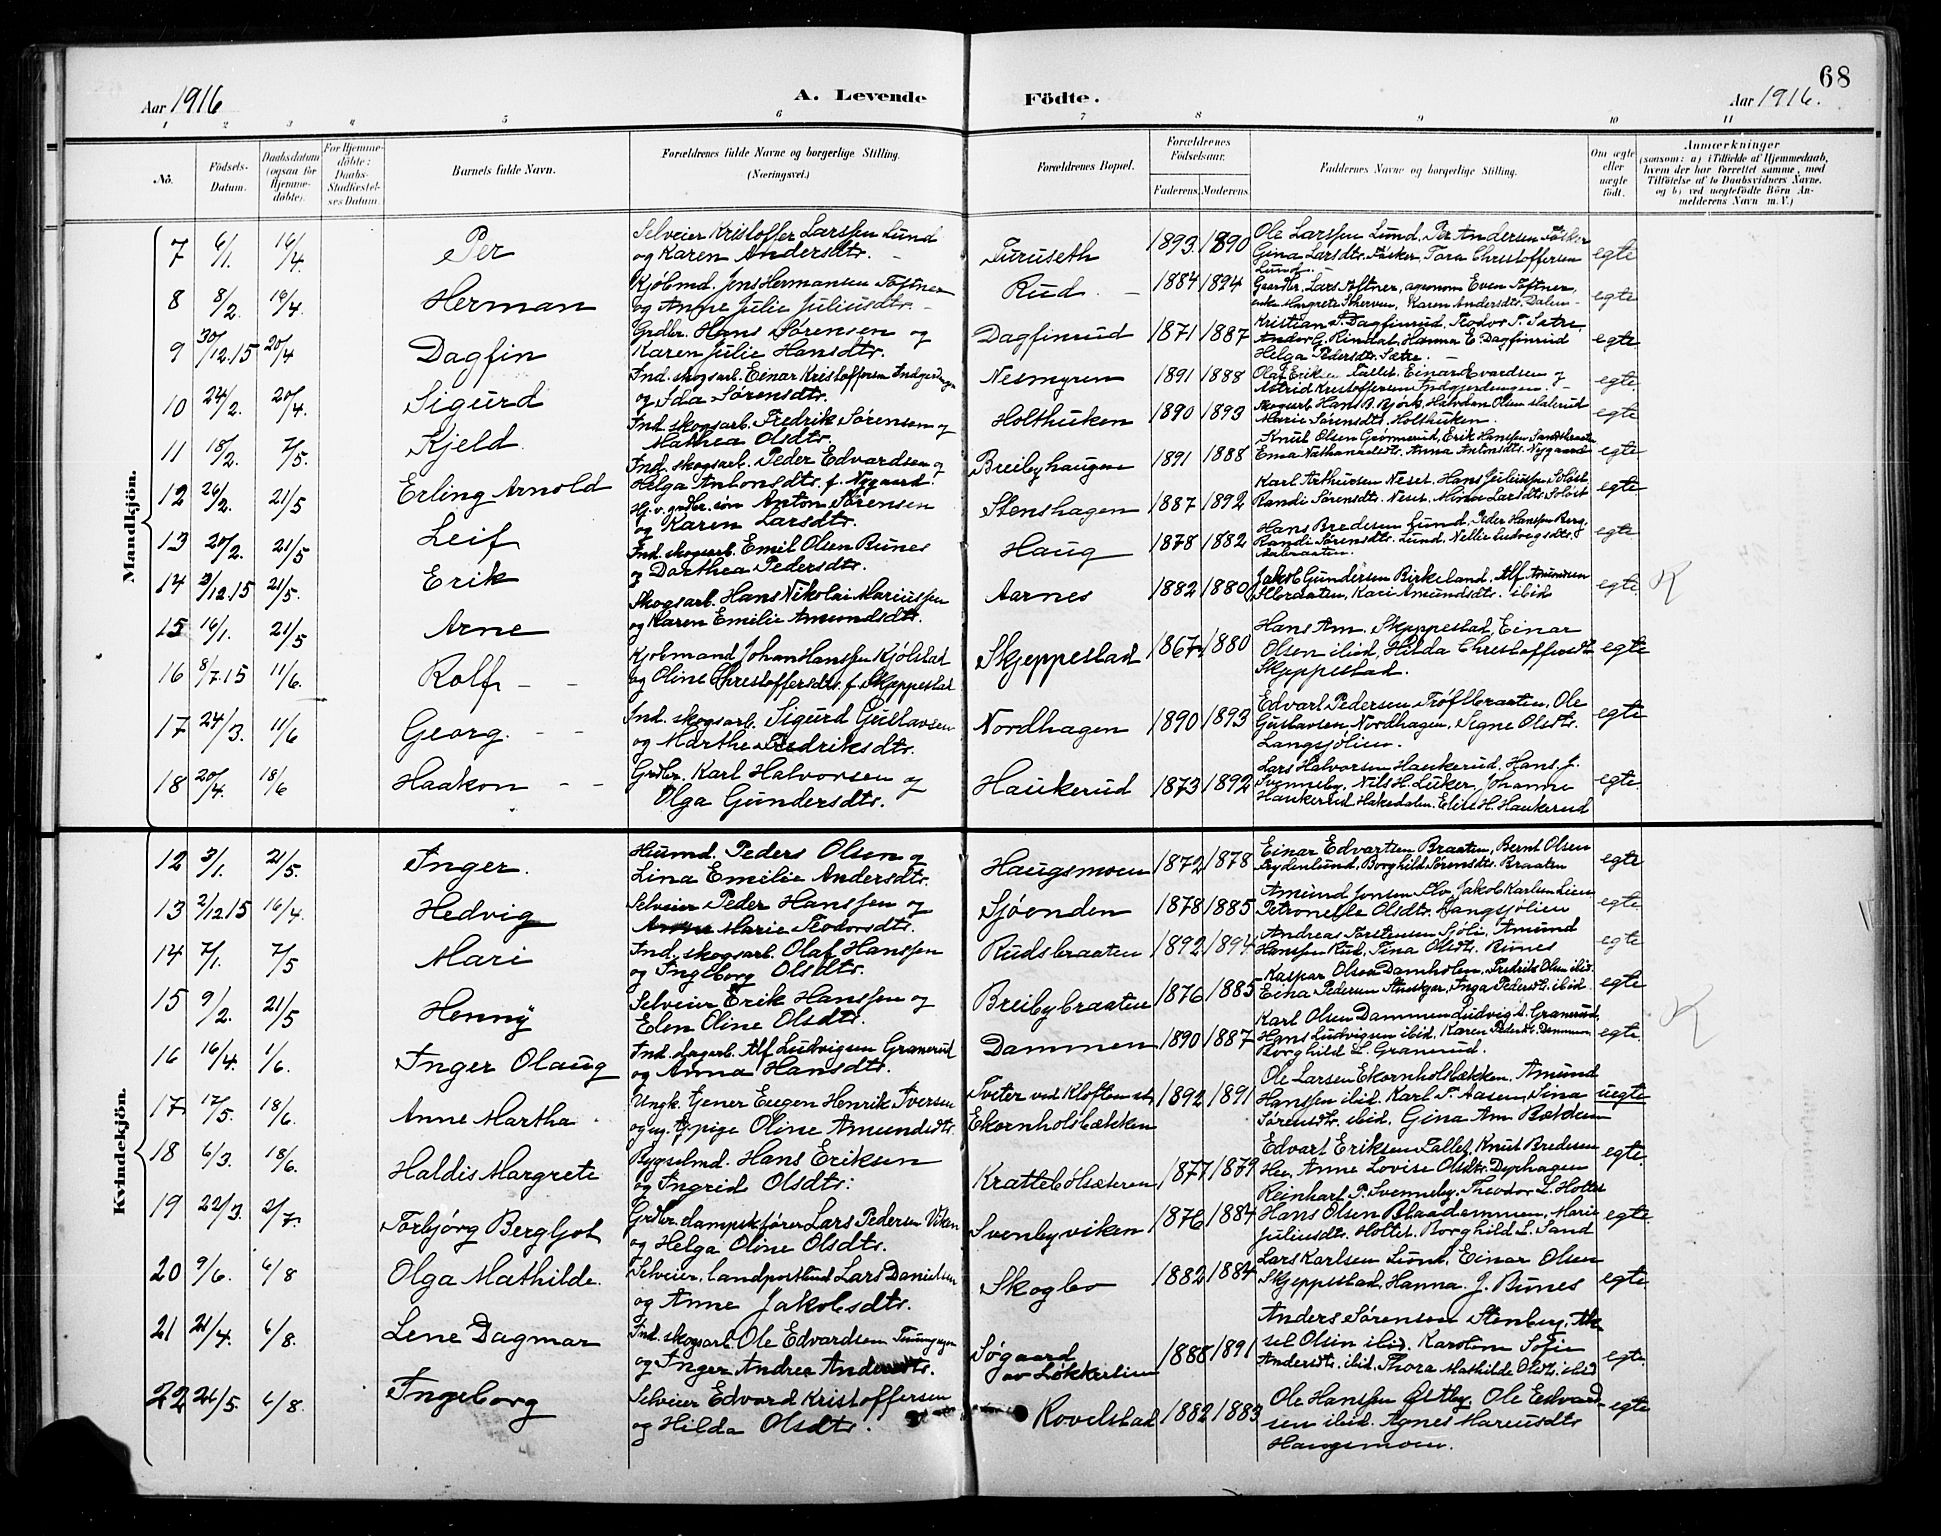 68
Aar 1916
A. Levende
Födte.
Aar 1916.
1 2 3 4 5 6 7 8 9 10 11
No.
Födsels-Datum.
Daabsdatum (ogsaa for Hjemme-döbte).
For Hjemme-döbte: Daabs-Stadfæstel-ses Datum.
Barnets fulde Navn.
Forældrenes fulde Navne og borgerlige Stilling. (Næringsvei.)
Forældrenes Bopæl.
Forældrenes Födselsaar.
Faderens. Moderens.
Faddernes Navne og borgerlige Stilling.
Om ægte eller uægte födt.
Anmærkninger
(saasom: a) i Tilfælde af Hjemmedaab, hvem der har forrettet samme, med Tilföielse af to Daabsvidners Navne, og b) ved uægtefödte Börn An-melderens Navn m. V.)
Mandkjön.
7 6/1. 16/4. Per Selveier Kristoffer Larssen Lund og Karen Andersdtr. Furuseth 1893 1890 Ole Larssen Lund, Per Andersen Fösker Gina Larsdtr. Fösker, Tora Christoffersen Lund. egte
8 8/2. 16/4. Herman Kjøbmd. Jens Hermansen Toftner og Anne Julie Juliusdtr. Rud 1884 1894 Grdbr. Lars Toftner, agronom Even Toftner, enke Margrete Skerven, Karen Andersdtr. Dalen egte
9 30/12.15 20/4 Dagfin Grdbr. Hans Sørensen og Karen Julie Hansdtr. Dagfinrud 1871 1887 Kristian S. Dagfinrud, Teodor P. Sætre, Andor G. Rindal, Hanna E. Dagfinrud Helga Pedersdtr. Sætre. egte
10 24/2. 20/4. Sigurd Ind. skogsarb. Einar Kristoffersen Indgjerdingen og Ida Sørensdtr. Nesmyren 1891 1888 Olaf Eriksen Fallet, Einar Evardsen og Astrid Kristoffersen Indgjerdingen. egte
11 18/2. 7/5. Kjeld. Ind. skogsarb. Fredrik Sørensen og Mathea Olsdtr. Holthuken 1890 1893 Skogsarb. Hans B. Bjørk, Halvdan Olsen Slaterud Marie Sørensdtr. Holthuken. egte
12 26/2. 21/5 Erling Arnold Ind. skogsarb. Peder Edvardsen og Helga Antonsdtr. f. Nygaard. Breibyhaugen 1891 1888 Knut Olsen Grønnerud, Erik Hanssen Sandbraaten Ema Nathanaelsdtr. Anna Antonsdtr. Nygaard egte
13 20/2. 21/5 Leif Hj. v. grdbr. søn Anton Sørensen og Karen Larsdtr. Stenshagen 1887 1892 Karl Arthursen Neset, Hans Juliussen Solöst, Randi Sørensdtr. Neset, Mina Larsdtr. Solöst egte
14 2/12.15 21/5. Erik Ind. skogsarb. Emil Olsen Bunes og Dorthea Pedersdtr. Haug 1878 1882 Hans Bredesen Lund, Peder Hanssen Berg, Randi Sørensdtr. Lund, Nellie Ludvigsdtr. egte
15 16/1. 21/5 Arne Skogsarb. Hans Nikolai Mariussen og Karen Emilie Amundsdtr. Aarnes 1882 1880 Jakob Gundersen Birkeland, Alf Amundsen, Kari Amundsdtr. ibid egte K
16 8/7.15 11/6. Rolf Kjøbmand Johan Hanssen Kjölstad og Oline Christoffersdtr. f. Skjeppestad Skjeppestad 1867 1880 Hans Am. Skjeppestad, Einar Olsen ibid, Hilda Christoffersdt. Skjeppestad. egte
17 24/3. 11/6 Georg. Ind. skogsarb. Sigurd Gustavsen og Marthe Fredriksdtr. Nordhagen 1890 1893 Edvart Pedersen Trøftbraaten, Ole Gustavsen Nordhagen, Signe Olsdtr. Langsjölien. egte
18 20/4. 18/6 Haakon Grdbr. Karl Halvorsen og Olga Gundersdtr. Haukerud 1873 1892 Lars Halvorsen Haukerud, Hans J. Svenneby, Nils H. Luker, Johanne Haukerud Hakedalen, Eline H. Haukerud egte.
Kvindekjön.
12 3/1. 21/5. Inger. Husmd. Peders Olsen og Lina Emilie Andersdtr. Haugsmoen 1872 1878 Einar Edvartsen Braaten, Bernt Olsen Frydenlund, Borghild Sørensdtr. Braaten egte
13 2/12.15 16/4. Hedvig Selveier Peder Hanssen og Marie Teodorsdtr. Sjöenden 1878 1885 Amund Jonsen, Jakob Karlsen Lien Petronelle Olsdtr. Langsjölien egte.
14 7/1. 7/5 Mari Ind. skogsarb. Olaf Hanssen og Ingeborg Olsdtr. Rudsbraaten 1892 1894 Andreas Torstensen Sjöli, Amund Hanssen Rud, Tina Olsdtr. Bunes egte
15 9/2. 21/5 Henny Selveier Erik Hanssen og Elen Oline Olsdtr. Breibybraaten 1876 1885 Kaspar Olsen Damholen, Fredrik Olsen ibid. Eina Pedersen, Inga Pedersdt. ibid. egte
16 16/4. 1/6. Inger Olaug Ind. dagarb. Alf Ludvigsen Granerud og Anna Hansdtr. Dammen 1890 1887 Karl Olsen Dammen, Ludvig A. Granerud, Hans Ludvigsen ibid, Karen Pedersdt. Dammen Borghild L. Granerud. egte. K
17 17/5. 18/6. Anne Martha Ungk. Gener Eugen Henrik Iversen og ug. pige Oline Amundsdtr. Tveter ved Klöften st. Ekornholsbækken 1892 1891 Ole Larsen Ekornholsbækken, Amund Hanssen ibid. Karl T. Aasen, Lina Sørensdtr. ibid, Gina Am. uegte
18 6/3. 18/6. Haldis Margrete Bygselmd. Hans Eriksen og Ingrid Olsdtr. Krattebölsæteren 1877 1879 Edvart Eriksen Fallet, Knut Bredesen Hee, Anne Lovise Olsdtr. Dyrhagen egte.
19 22/3. 2/7. Torbjørg Bergljot Grdbr. dampskfører Lars Pedersen Viken og Helga Oline Olsdtr. Svenbyviken 1876 1884 Reinhart P. Svenneby, Theodor L. Hottet Hans Olsen Blaadammen, Marie Juliusdtr. Hottet, Borghild L. Sand egte
20 9/6. 6/8 Olga Mathilde. Selveier, landpostbud Lars Danielsen og Anne Jakobsdtr. Skogbo 1882 1884 Lars Karlsen Lund, Einar Olsen Skjeppestad, Hanna J. Bunes egte.
21 21/4. 6/8. Lene Dagmar Ind. skogsarb. Ole Edvardsen og Inger Andrea Andersdtr. Søgaard av Løkkerlien 1888 1891 Anders Sørensen Stenby, Aksel Olsen ibid. Karoline Sofie Andersdtr. ibid. Thora Mathilde Olsdt. ibid egte.
22 26/5. 6/8. Ingeborg Selveier Edvard Kristoffersen og Hilda Olsdtr. Rovelstad 1882 1883 Ole Hanssen Østby, Ole Edvardsen ibid. Agnes Mariusdtr Haugsmoen. egte